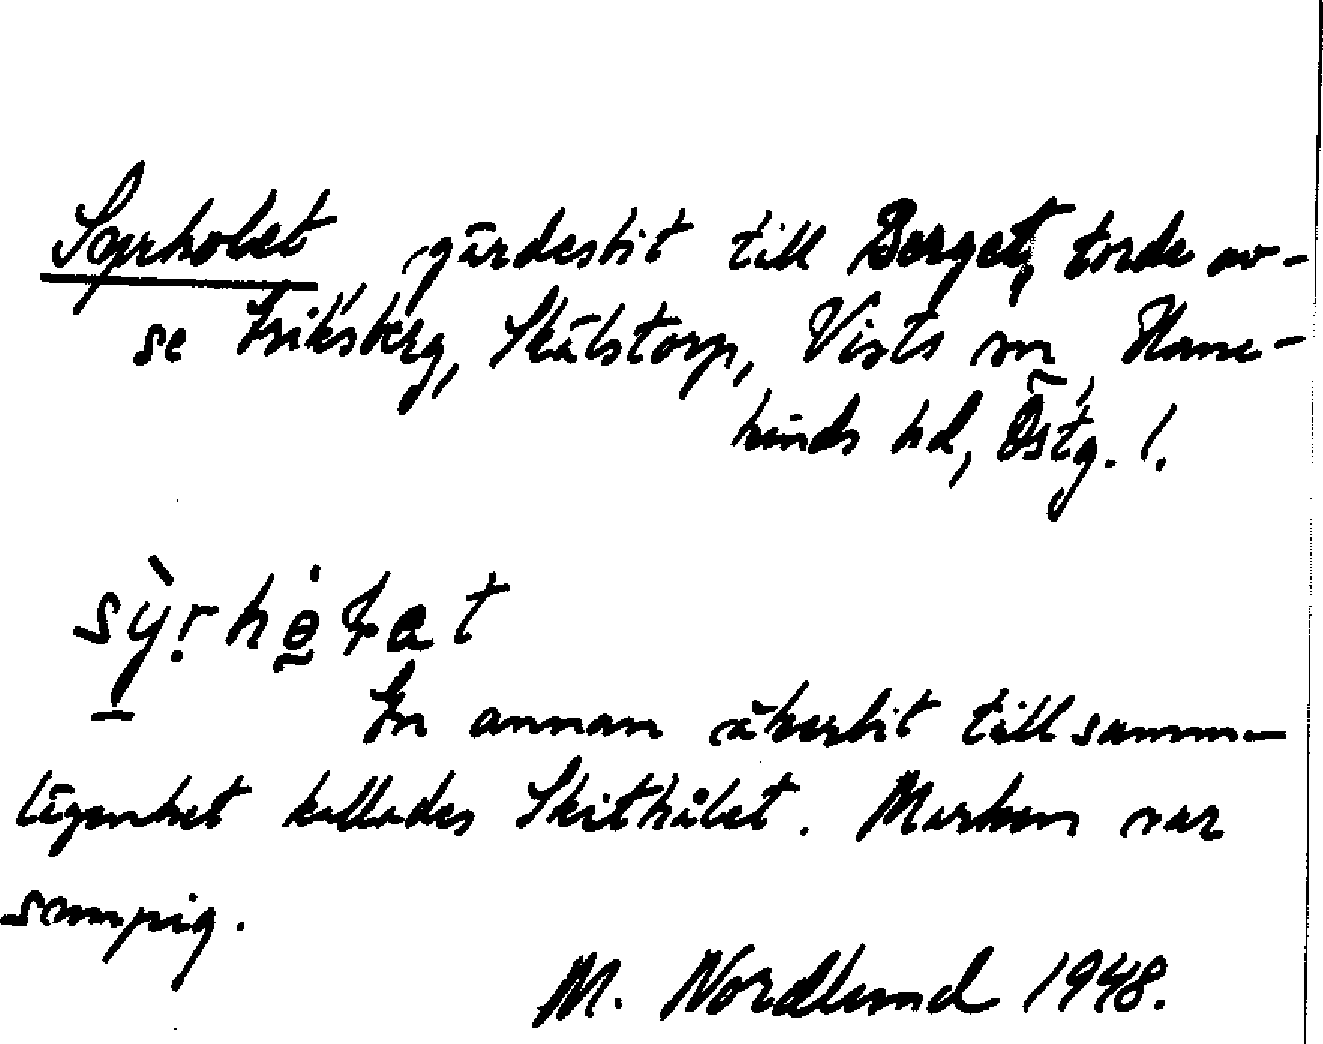 Syrholet gärdesbit till Berget, torde av-
se Eriksberg, Skälstorp, Vists sn, Hane-
kinds hd, Östg. l.
sỳrhọ̇ɫat
En annan åkerbit till samma
lägenhet kallades Skithålet. Marken var
sumpig.
M. Nordlund 1948.